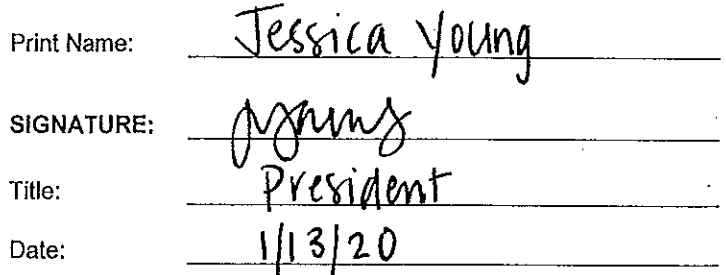 Print Name: Jessica Young
SIGNATURE: JYoung
Title: President
Date: 1/13/20